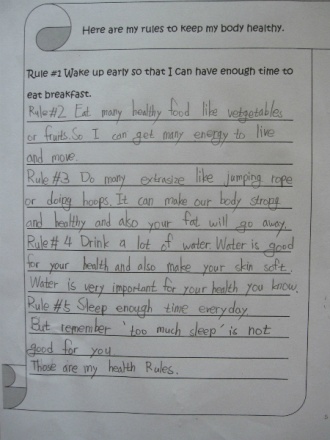 Here are my rules to keep my body healthy.
Rule #1 Wake up early so that I can have enough time to
eat breakfast.
Rule#2 Eat many healthy food like vetgetables
or fruits. So I can get many energy to live
and move.
Rule #3 Do many extrasize like jumping rope
or doing hoops. It can make our body strong
and healthy and also your fat will go away.
Rule# 4 Drink a lot of water. Water is good
for your health and also make your skin soft.
Water is very important for your health you know.
Rule #5 Sleep enough time everyday
But remember 'too much sleep' is not
good for you
Those are my health Rules.